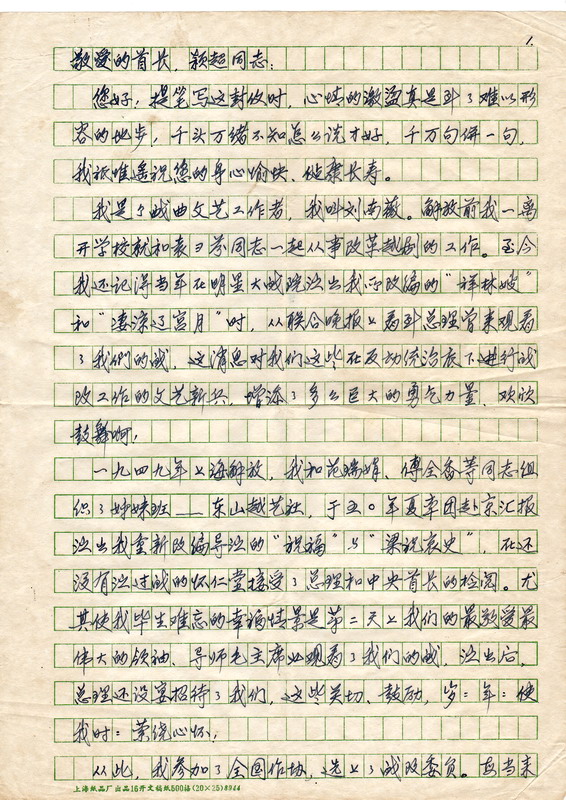 1.
敬爱的首长,颖超同志:
您好!提笔写这封信时,心情的激盪真是到了难以形
容的地步,千头万绪不知怎么说才好,千万句併一句,
我祗惟遥祝您的身心愉快、健康长寿。
我是个戏曲文艺工作者,我叫刘南薇。解放前我一离
开学校就和袁雪芬同志一起从事改革越剧的工作。至今
我还记得当年在明星大戏院泣出我所改编的"祥林嫂"
和"凄凉辽宫月"时,从联合晚报上看到总理曾来观看
了我们的戏,这消息对我们这些在反动统治底下进行戏
改工作的文艺新兵,增添了多么巨大的勇气力量、欢欣
鼓舞啊!
一九四九年上海解放,我和范瑞娟、傅全香等同志组
织了姊妹班——东山越艺社,于五〇年夏率团赴京汇报
演出我重新改编导演的"祝福"与"梁祝哀史",在还
没有演过戏的怀仁堂接受了总理和中央首长的检阅。尤
其使我毕生难忘的幸福情景是第二天上我们的最敬爱最
伟大的领袖、导师毛主席也观看了我们的戏,演出后,
总理还设宴招待了我们,这些关切、鼓励,岁:年:使
我时:萦绕心怀!
从此,我参加了全国作协,选上了戏改委员。
上海纸品厂出品16开文稿纸500格(20×25)8944